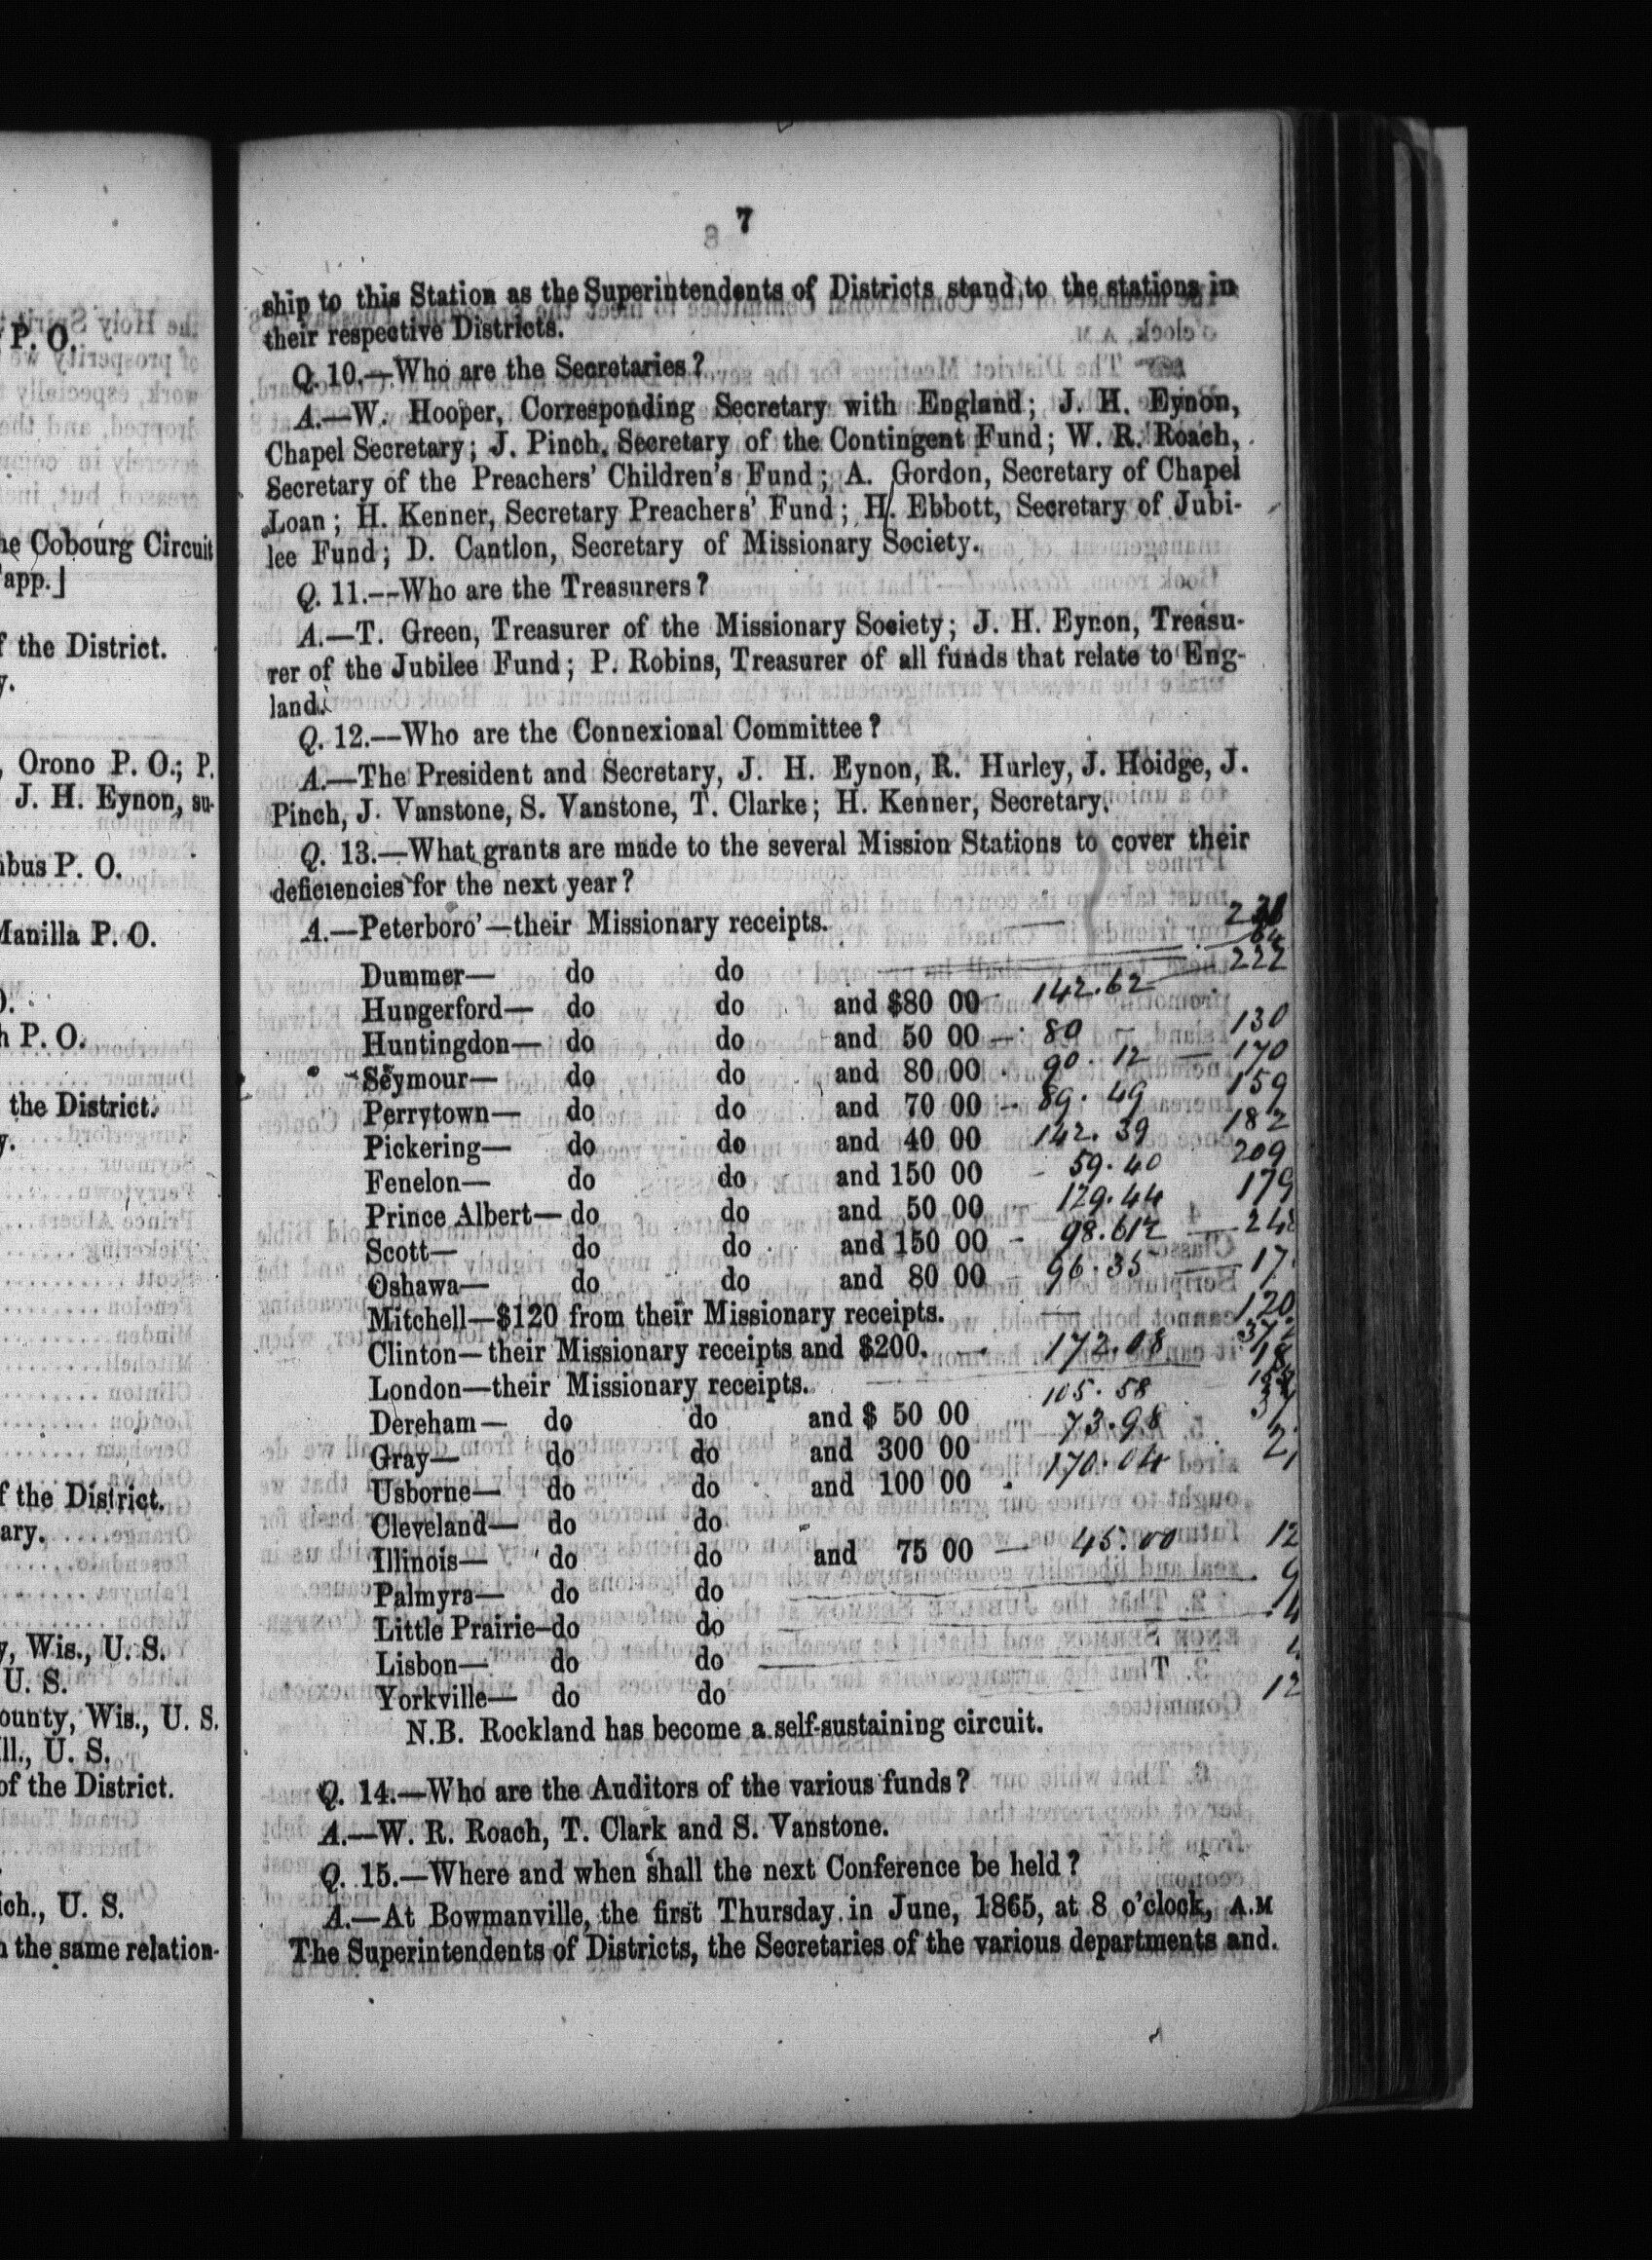 P. O.
he Cobourg Circuit
app.]
f the District.
y.
, Orono P. O.; P.
J. H. Eynon, su-
ibus P. O.
Manilla P. O.
O.
h P. O.
the District.
y.
f the District.
ary.
y, Wis., U. S.
U. S.
ounty, Wis., U. S.
Ill., U. S.
of the District.
ich., U. S.
n the same relation-
7
ship to this Station as the Superintendents of Districts stand to the stations in
their respective Districts.
Q. 10.—Who are the Secretaries?
A.—W. Hooper, Corresponding Secretary with England; J. H. Eynon,
Chapel Secretary; J. Pinch, Secretary of the Contingent Fund; W. R. Roach,
Secretary of the Preachers' Children's Fund; A. Gordon, Secretary of Chapel
Loan; H. Kenner, Secretary Preachers' Fund; H. Ebbott, Secretary of Jubi-
lee Fund; D. Cantlon, Secretary of Missionary Society.
Q. 11.—Who are the Treasurers?
A.—T. Green, Treasurer of the Missionary Society; J. H. Eynon, Treasu-
rer of the Jubilee Fund; P. Robins, Treasurer of all funds that relate to Eng-
land.
Q. 12.—Who are the Connexional Committee?
A.—The President and Secretary, J. H. Eynon, R. Hurley, J. Hoidge, J.
Pinch, J. Vanstone, S. Vanstone, T. Clarke; H. Kenner, Secretary.
Q. 13.—What grants are made to the several Mission Stations to cover their
deficiencies for the next year?
A.—Peterboro'—their Missionary receipts.
Dummer— do do
Hungerford— do do and $80 00 142.62 222
Huntingdon— do do and 50 00 80 130
Seymour— do do and 80 00 90.12 170
Perrytown— do do and 70 00 89.49 159
Pickering— do do and 40 00 142.39 182
Fenelon— do do and 150 00 59.40 209
Prince Albert— do do and 50 00 129.44 179
Scott— do do and 150 00 98.61½ 248
Oshawa— do do and 80 00 96.35 17
Mitchell—$120 from their Missionary receipts. 120
Clinton—their Missionary receipts and $200. 172.08 372
London—their Missionary receipts.
Dereham— do do and $ 50 00 105.58
Gray— do do and 300 00 73.98 37
Usborne— do do and 100 00 170.04 2
Cleveland— do do
Illinois— do do and 75 00 45.00 12
Palmyra— do do 9
Little Prairie—do do 14
Lisbon— do do
Yorkville— do do 12
N.B. Rockland has become a self-sustaining circuit.
Q. 14.—Who are the Auditors of the various funds?
A.—W. R. Roach, T. Clark and S. Vanstone.
Q. 15.—Where and when shall the next Conference be held?
A.—At Bowmanville, the first Thursday in June, 1865, at 8 o'clock, A.M
The Superintendents of Districts, the Secretaries of the various departments and.